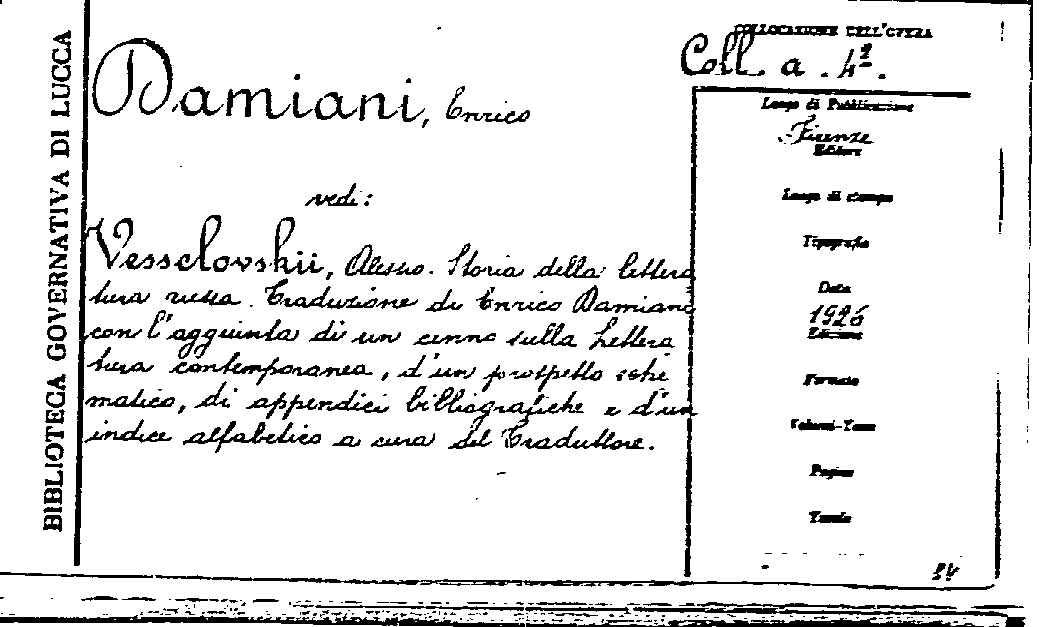 BIBLIOTECA GOVERNATIVA DI LUCCA
Damiani, Enrico
vedi:
Vesselovskii, Alessio. Storia della lettera
tura russa. Traduzione di Enrico Damiani
con l'aggiunta di un cenno sulla Lettera
tura contemporanea, d'un prospetto sche
matico, di appendici bibliografiche e d'un
indice alfabetico a cura del Traduttore.
COLLOCAZIONE DELL'OPERA
Coll. a. 42.
Luogo di Pubblicazione
Firenze
Editore
Luogo di stampa
Tipografia
Data
1926
Edizione
Formato
Volumi-Tomi
Pagine
Tavole